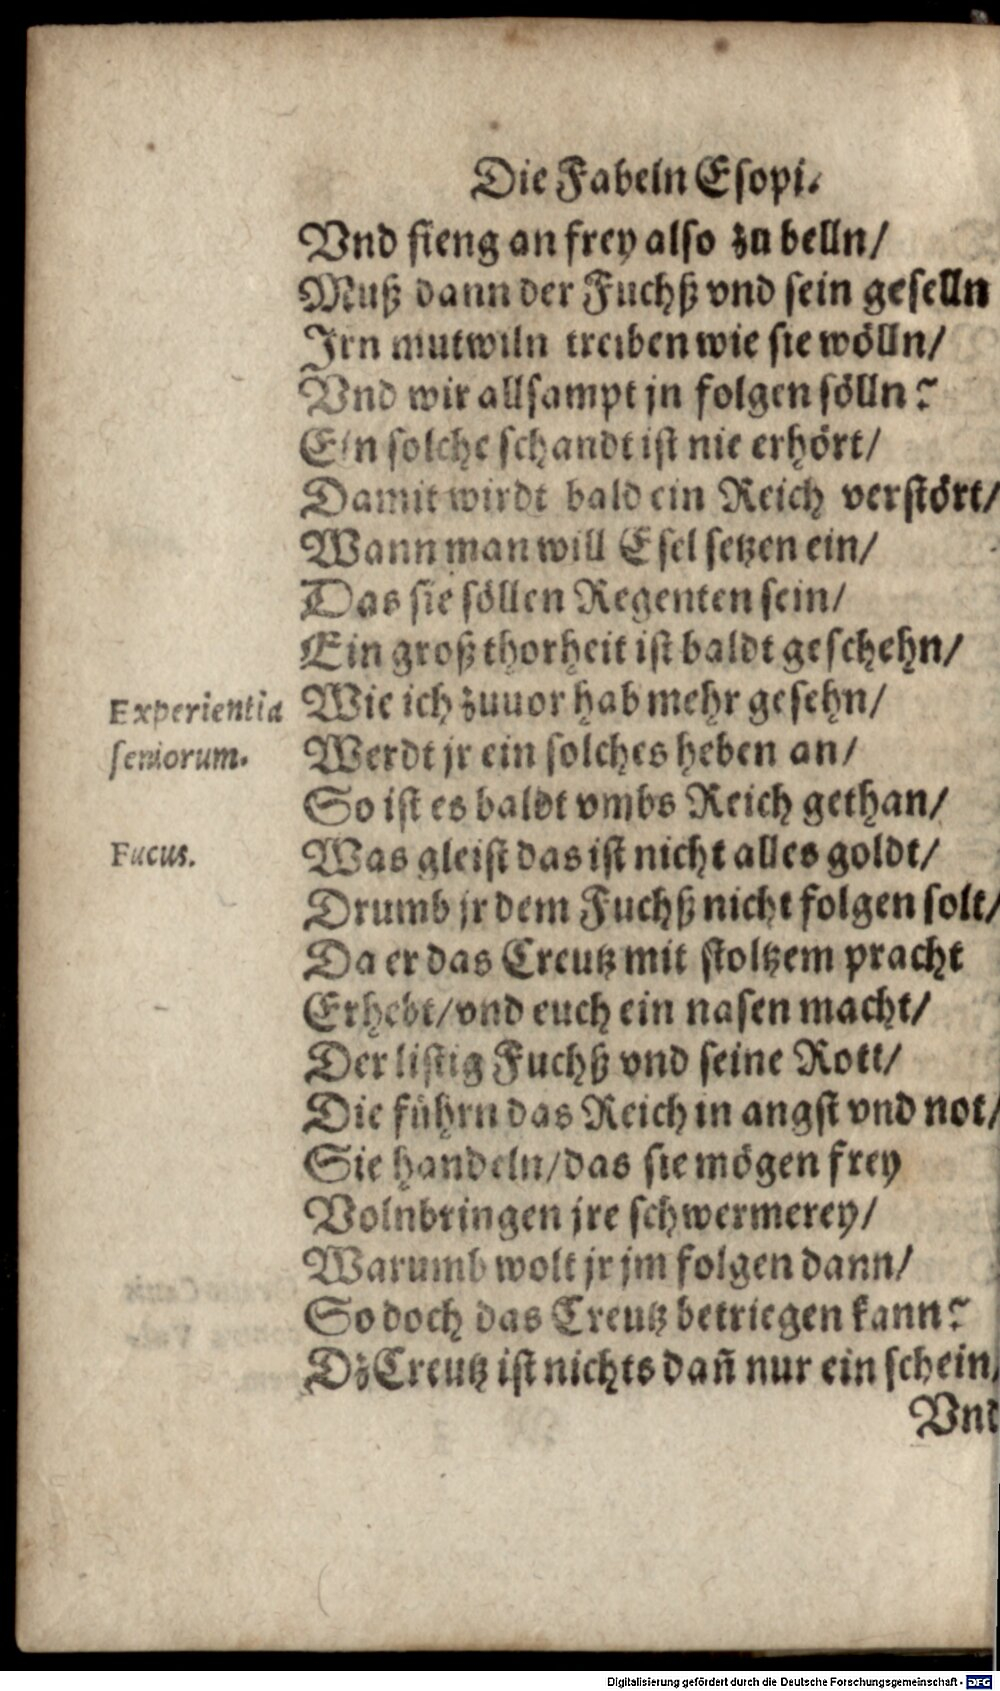 Die Fabeln Esopi.
Vnd fieng an frey also zu belln/
Muß dann der Fuchß vnd sein geselln
Irn mutwiln treiben wie sie wölln/
Vnd wir allsampt jn folgen sölln?
Ein solche schandt ist nie erhört/
Damit wirdt bald ein Reich verstört/
Wann man will Esel setzen ein/
Das sie söllen Regenten sein/
Ein groß thorheit ist baldt geschehn/
Experientia Wie ich zuuor hab mehr gesehn/
seniorum. Werdt jr ein solches heben an/
So ist es baldt vmbs Reich gethan/
Fucus. Was gleist das ist nicht alles goldt/
Drumb jr dem Fuchß nicht folgen solt/
Da er das Creutz mit stoltzem pracht
Erhebt/vnd euch ein nasen macht/
Der listig Fuchß vnd seine Rott/
Die führn das Reich in angst vnd not/
Sie handeln/das sie mögen frey
Volnbringen jre schwermerey/
Warumb wolt jr jm folgen dann/
So doch das Creutz betriegen kann?
Dz Creutz ist nichts dañ nur ein schein/
Vnd
Digitalisierung gefördert durch die Deutsche Forschungsgemeinschaft - DFG